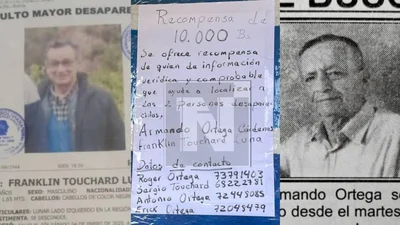 ULTO MAYOR DESAPARE
FRANKLIN TOUCHARD LU
SEXO: MASCULINO NACIONALIDA
CABELLOS DE COLOR NEGR
Recompensa de
10.000 Bs.
Se ofrece recompensa
de quien de información
verídica y comprobable
que ayude a localizar a
los 2 personas desapare-
cidos.
Armando Ortega Cárdenas
Franklin Touchard Luna
Datos de contacto
Roger Ortega 73791403
Sergio Touchard 68222781
Antonio Ortega 72448085
Erick Ortega 72048479
E BUSC
mando Ortega se
o desde el martes